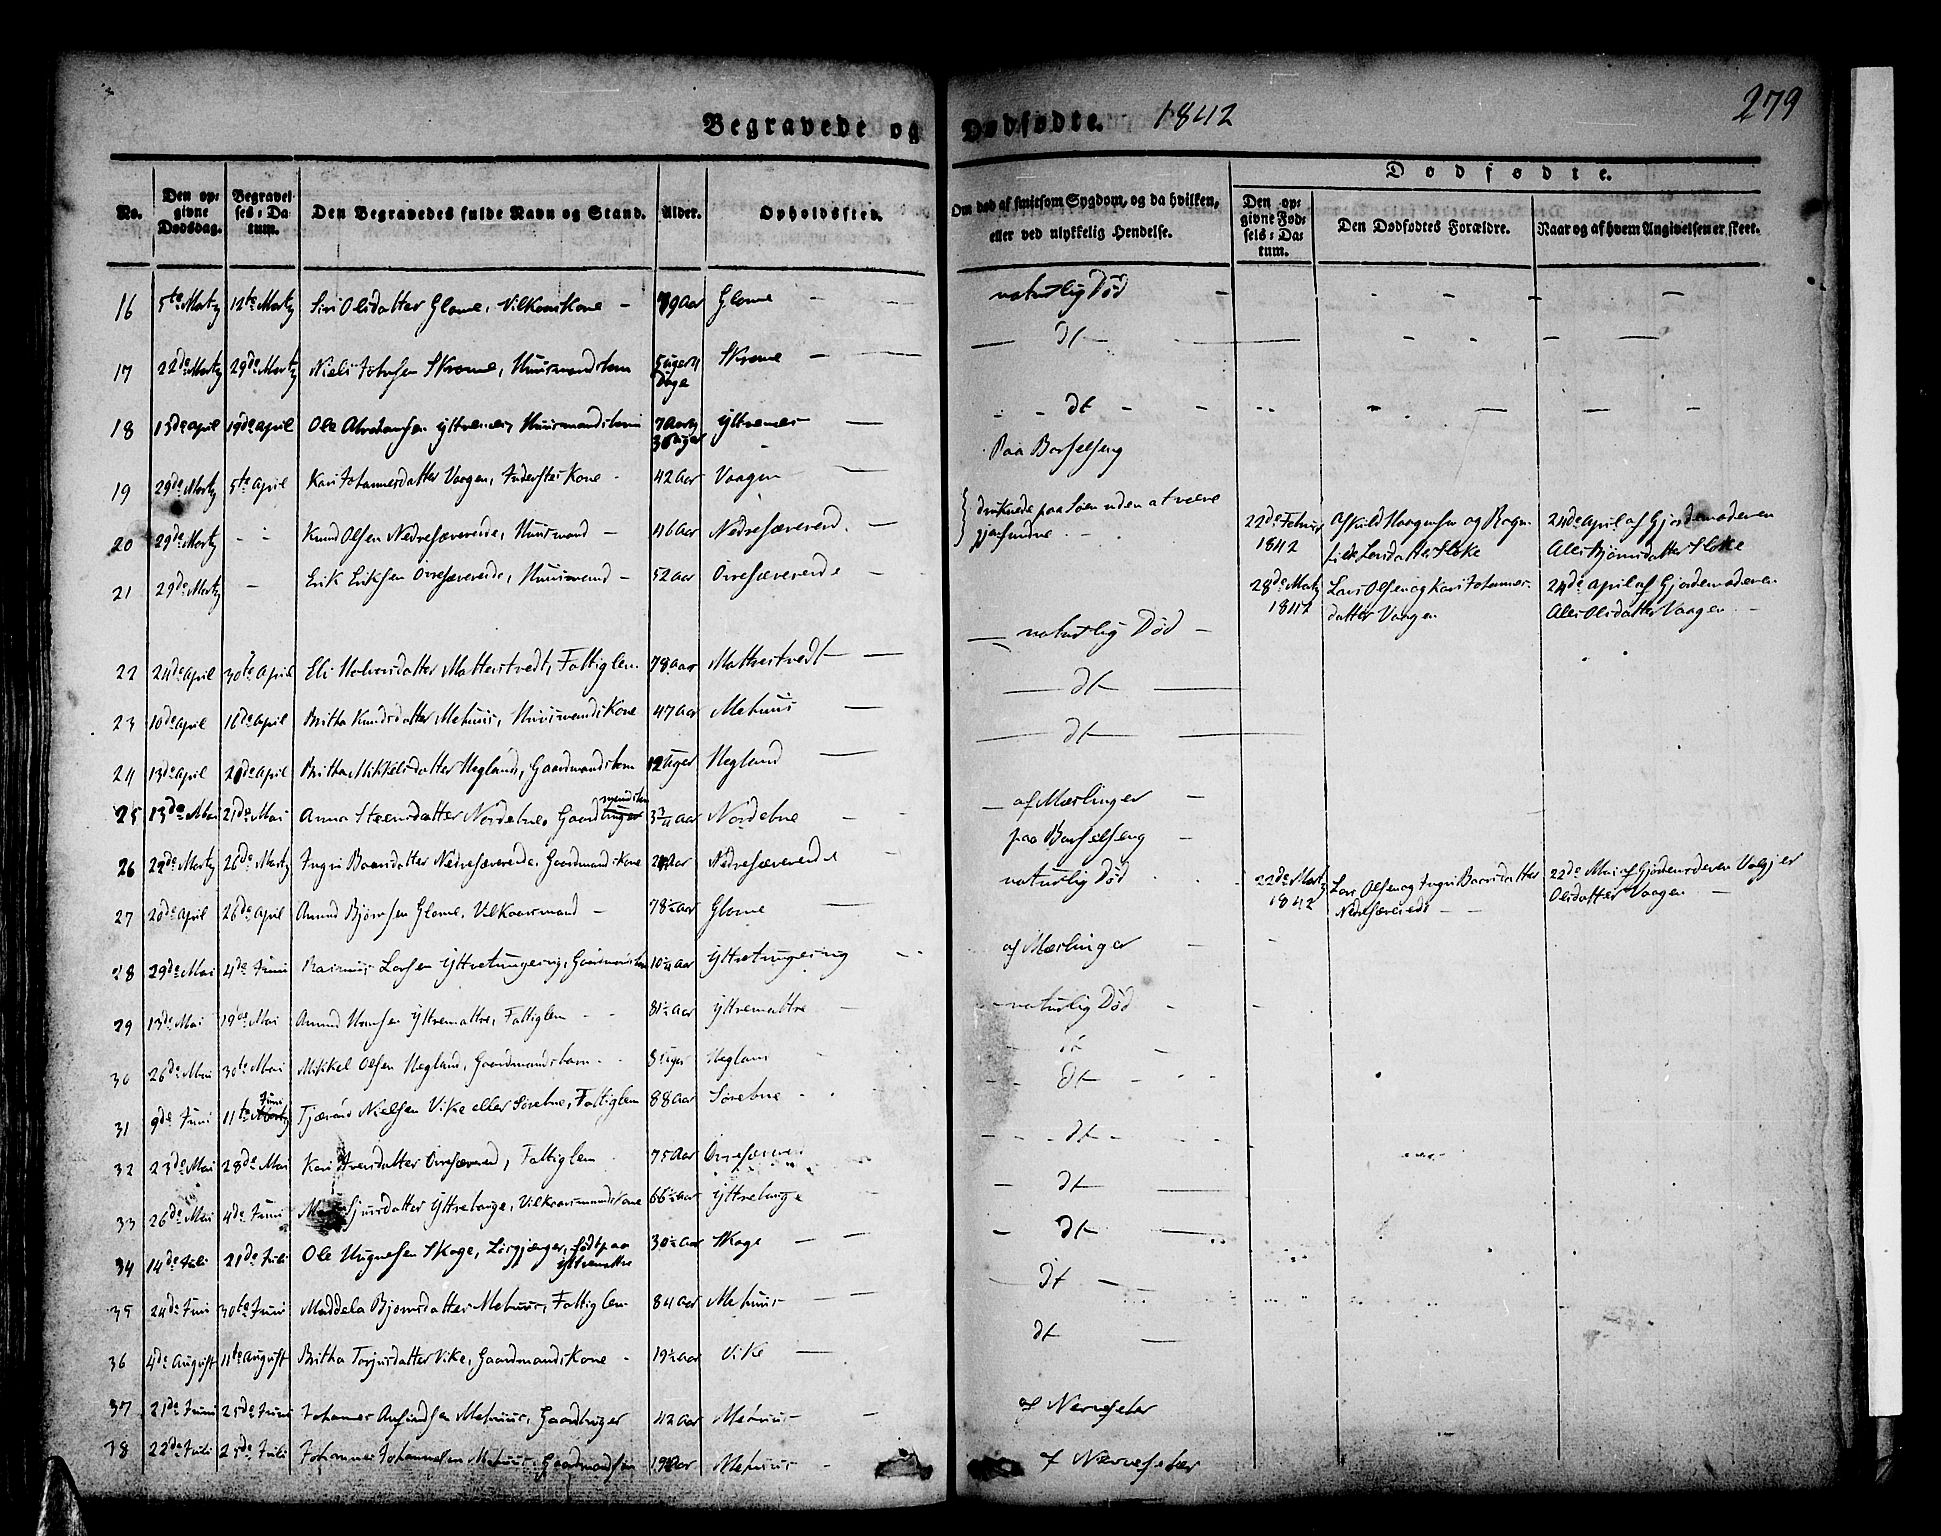 Begravede og Dødfødte. 1842 279
No.
Den opgivne Dødsdag.
Begravelses-Datum.
Den Begravedes fulde Navn og Stand.
Alder.
Opholdssted.
Om død af smitsom Sygdom, og da hvilken, eller ved ulykkelig Hendelse.
Dødfødte.
Den opgivne Fødsels-Datum.
Den Dødfødtes Forældre.
Naar og af hvem Angivelsen er skeet.
16 5te Martz 12te Martz Siri Olsdatter Glome, Vilkaarskone - 79 Aar Glome - naturlig Død
17 22de Martz 29de Martz Niels Johnsen Skrome, Huusmandsbarn 5 uger 4 Dage Skrome - dt
18 13de April 19de April Ole Abrahamsen Yttrenes, Huusmandsbarn 7 Aar 36 uger Yttrenes - dt
19 29de Martz 5te April Kari Johannesdatter Vaagen, Inderstes Kone - 42 Aar Vaagen Paa Barselseng
20 29de Martz - Knud Olsen Nedresævereide, Huusmand - 46 Aar Nedresævereid. - druknede paa Søen uden at være gjenfundne.
22de Februar 1842 Askild Haagensen og Ragnilde Larsdatter Floke 24de April af Gjordemoderen Alis Bjørnsdatter Floke
21 29de Martz - Erik Eriksen Øvresævereide, Huusmand - 52 Aar Øvresævereide -
28de Martz 1842 Lars Olsen og Kari Johannesdatter Vaagen 24de April af Gjordemoderen Alis Olsdatter Vaagen -
22 24de April 30te April Eli Halvorsdatter Mattrestvedt, Fattiglem. 78 Aar Mattrestvedt - naturlig Død
23 10de April 16de April Britha Knudsdatter Mehuus, Huusmands Kone 47 Aar Mehuus - dt
24 13de April 20de April Britha Mikkelsdatter Hegland, Gaardmandsbarn 12 uger Hegland - dt
25 13de Mai 21de Mai Anna Steensdatter Nordebne, Gaardmandsbarn 3 Aar Nordebne - af Mæslinger
26 22de Martz 26de Martz Ingri Baarsdatter Nedresævereide, Gaardmands Kone Aar Nedresævereide - paa Barselseng
22de Martz 1842 Lars Olsen og Ingri Baarsdatter Nedresævereide 22de Mai af Gjordemoderen Valgjer Olsdatter Vaagen -
27 20de April 26de April Amund Bjørnsen Glome, Vilkaarsmand - 78½ Aar Glome - naturlig Død
28 29de Mai 4de Juni Rasmus Larsen Yttretungesvig, Gaardmandsbarn 10 Aar Yttretungesvig - af Mæslinger
29 13de Mai 19de Mai Amund Hansen Yttremattre, Fattiglem - 81½ Aar Yttremattre - naturlig Død
30 26de Mai 30te Mai Mikkel Olsen Hegland, Gaardmandsbarn - 8 uger Hegland dt
31 9de Juni 11te Juni Tjæran Nielsen Vike eller Sørebne, Fattiglem 88 Aar Sørebne dt
32 23de Mai 28de Mai Kari Iversdatter Øvresævereid, Fattiglem 75 Aar Øvresæverei dt
33 26de Mai 4de Juni Sjursdatter Yttrebauge, Vilkaarsmandskone 66½ Aar Yttrebauge dt
34 14de Juli 21de Juli Ole Magnesen Skoge, Løsgjænger, født paa Yttremattre 30½ Aar Skoge - dt
35 24de Juni 30te Juni Maddela Bjørnsdatter Mehuus, Fattiglem 84 Aar Mehuus - dt
36 4de August 11te August Britha Torjusdatter Vike, Gaardmands Kone - 19½ Aar Vike - dt
37 21de Juni 25de Juni Johannes Anfindsen Mehuus, Gaardbruger 42 Aar Mehuus - af Nervefeber
38 22de Juli 25de Juli Johannes Johannesen Mehuus, Gaardmandsøn 19 Aar Mehuus - af Nervefeber